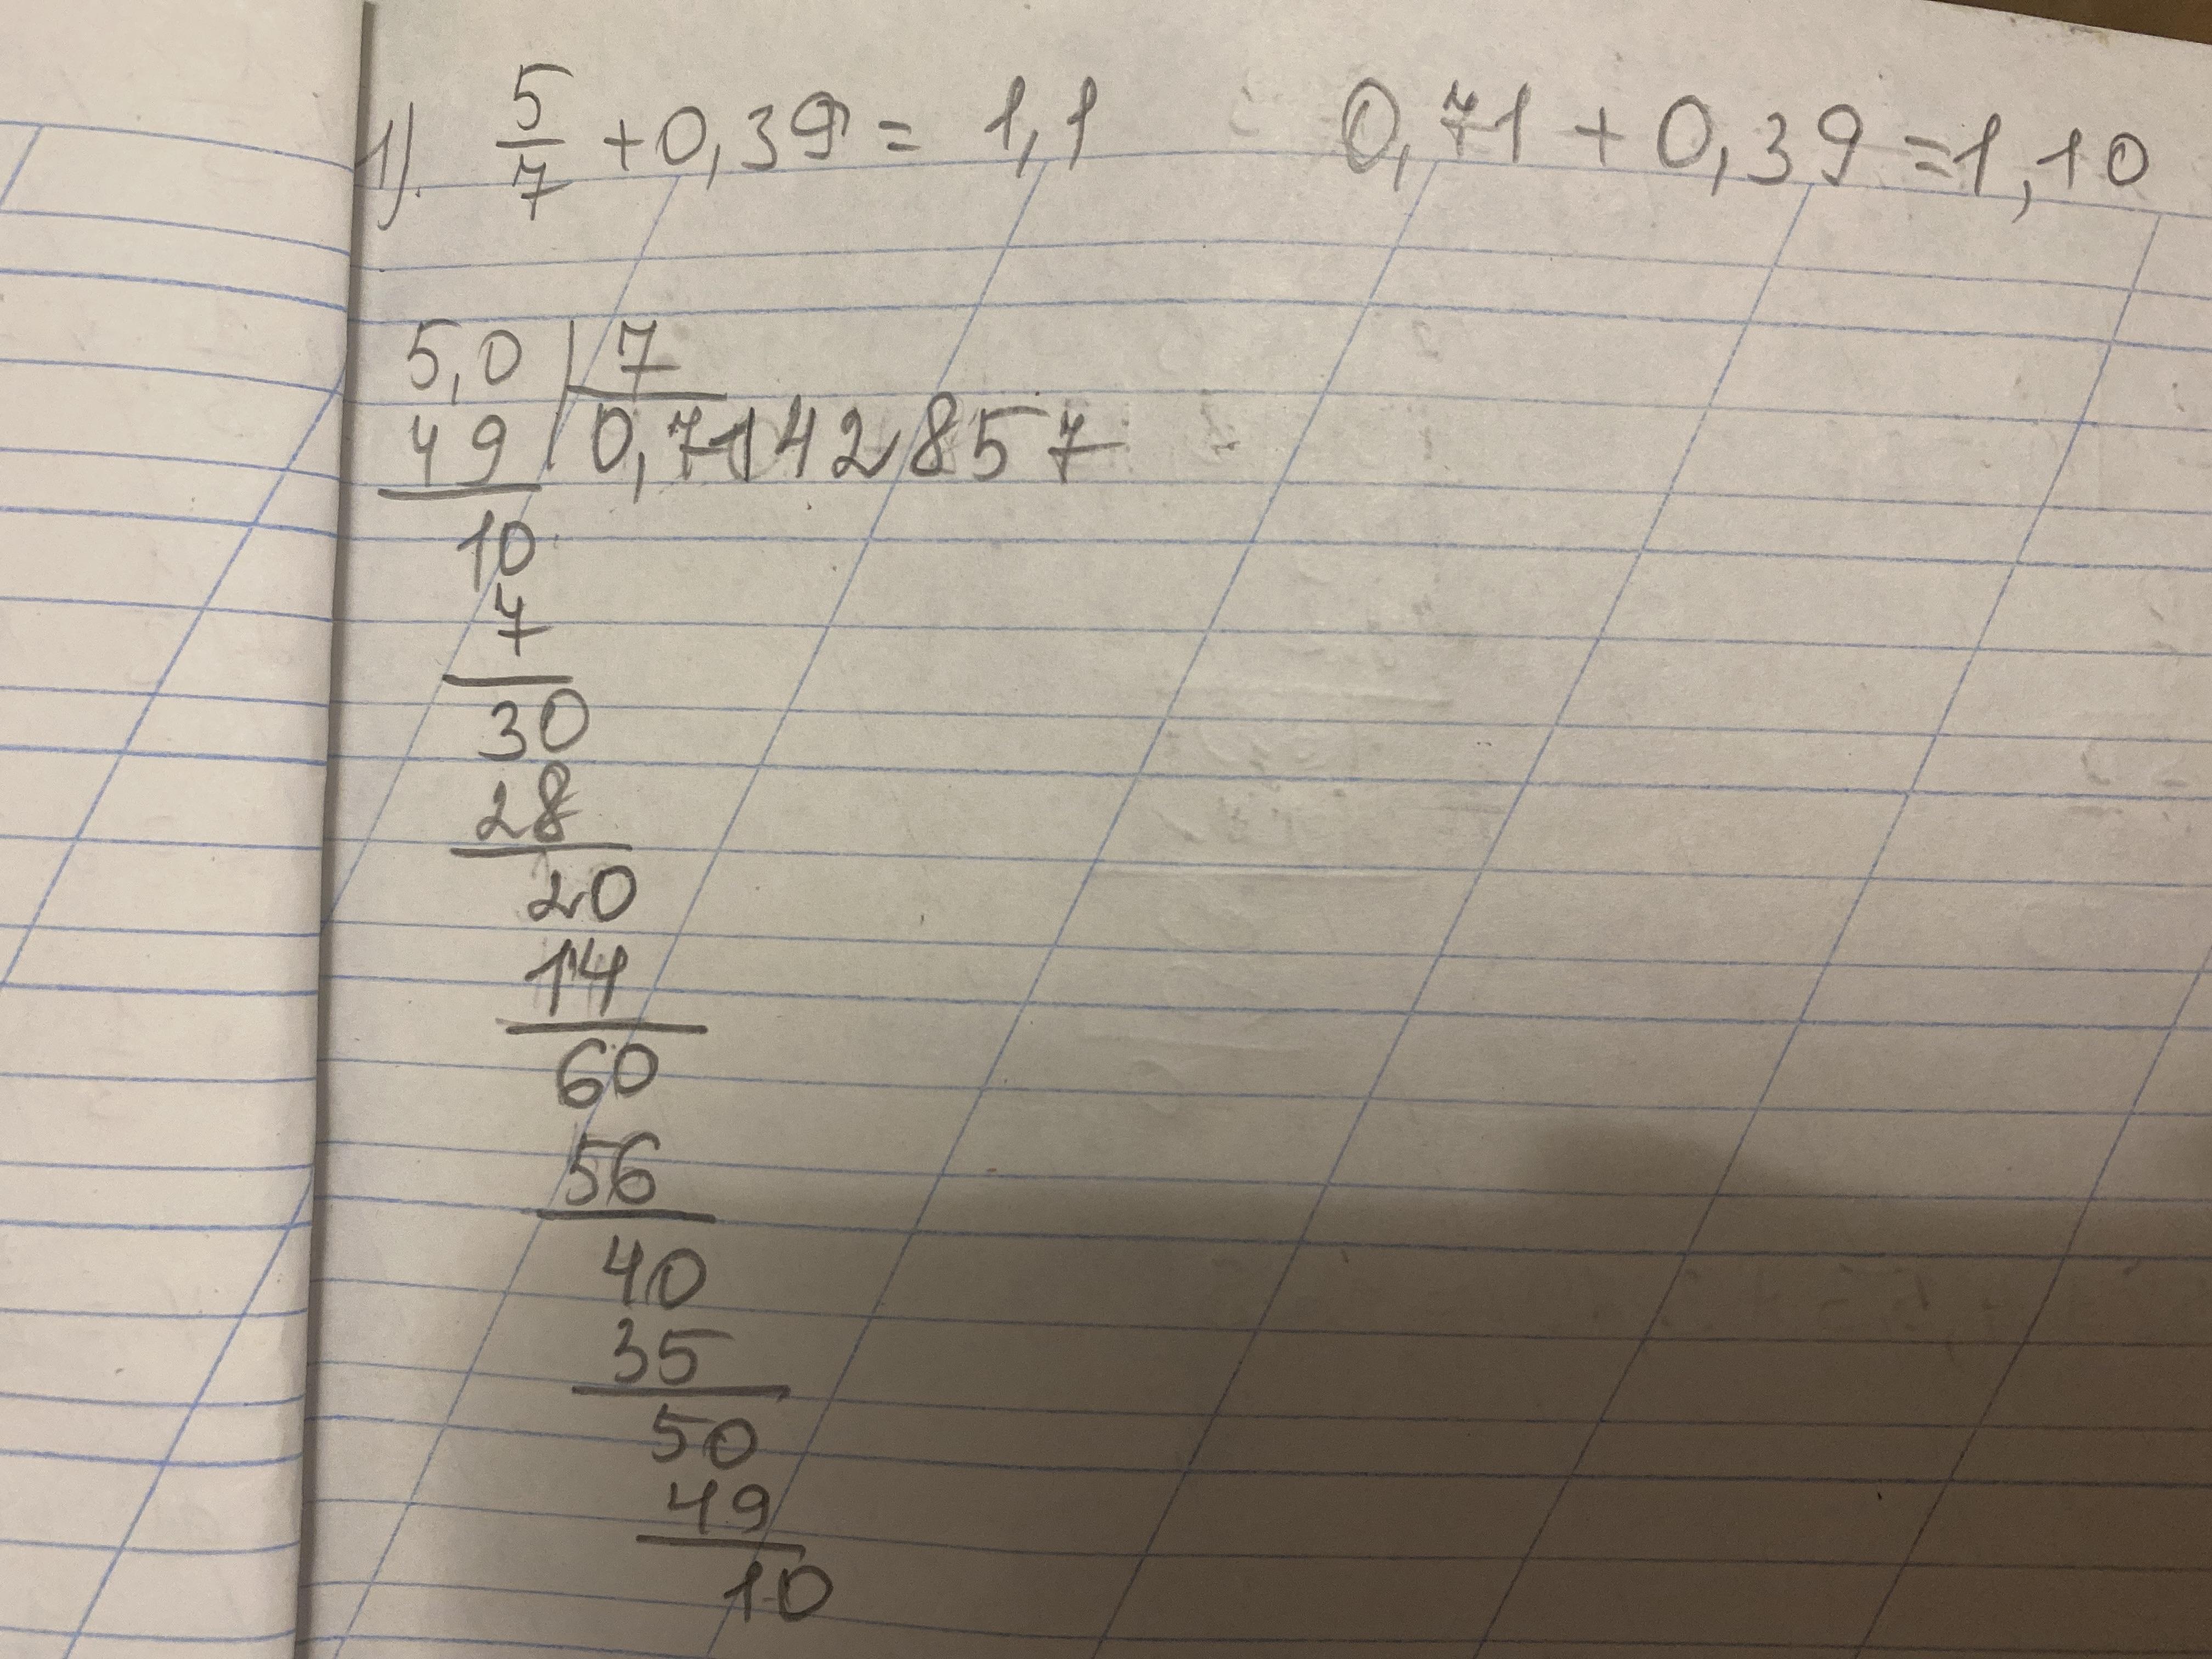 1). 5/7 + 0,39 = 1,1 0,71 + 0,39 = 1,10
5,0 | 7
49 | 0,7142857
10
7
30
28
20
14
60
56
40
35
50
49
10